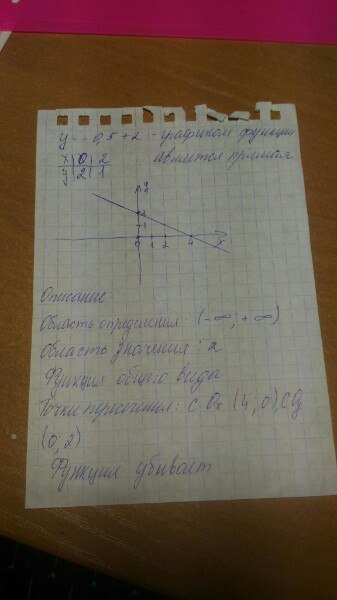 y = -0,5 + 2 - графиком функции
x 0 2 является прямая
y 2 1
y
2
1
0 1 2 4 x
Описание:
Область определения: (-∞; +∞)
Область значения: 2
Функция общего вида
Точки пересечения: с Ox (4; 0), с Oy
(0; 2)
Функция убывает